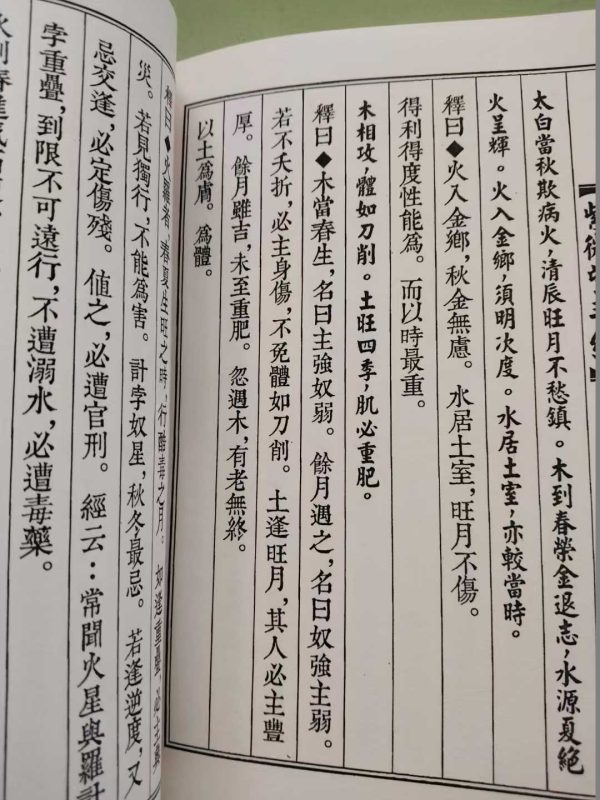 太白當秋欺病火，清辰旺月不愁鎮。木到春榮金退志，水源夏絕
火呈輝。火入金鄉，須明次度。水居土室，亦較當時。
釋曰◆火入金鄉，秋金無慮。水居土室，旺月不傷。
得利得度性能為。而以時最重。
木相攻，體如刀削。土旺四季，肌必重肥。
釋曰◆木當春生，名曰主強奴弱。餘月遇之，名曰奴強主弱。
若不夭折，必主身傷，不免體如刀削。土逢旺月，其人必主豐
厚。餘月雖吉，未至重肥。忽遇木，有老無終。
以土為膚。為體。
釋曰◆火羅者，春夏生旺之時，行酷毒之月。如逢重疊，必主
災。若見獨行，不能為害。計孛奴星，秋冬最忌。若逢逆度，又
忌交逢，必定傷殘。值之，必遭官刑。經云：常聞火星與羅計
孛重疊，到限不可遠行，不遭溺水，必遭毒藥。